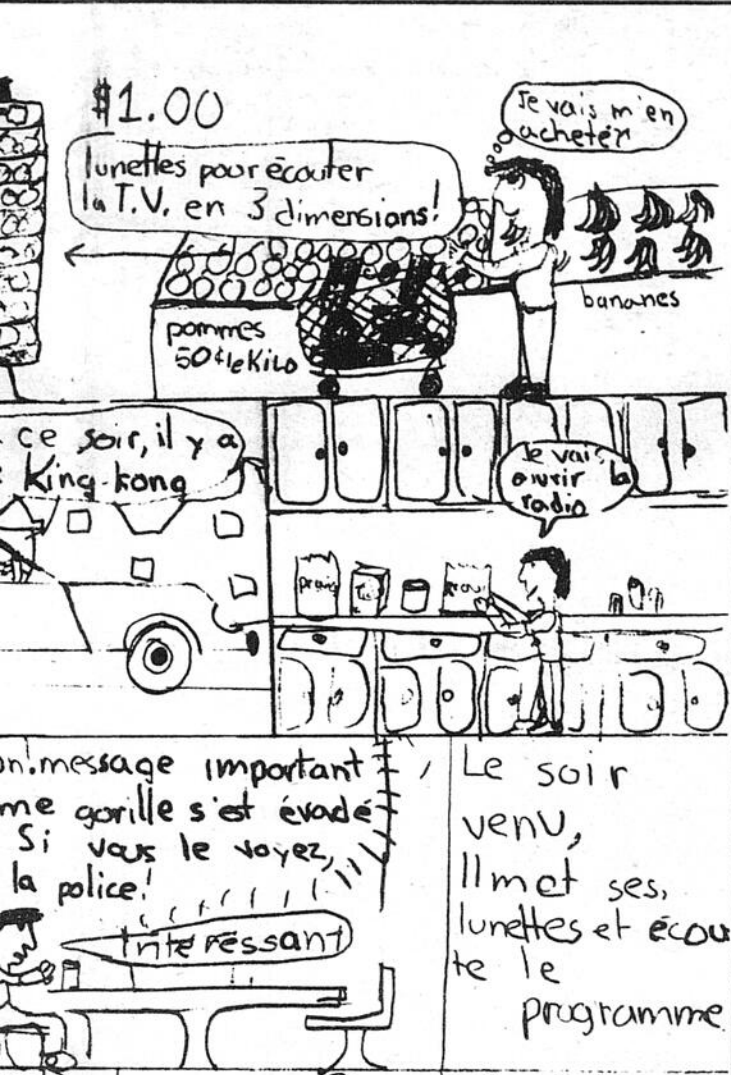 $1.00
Je vais m'en
acheter
lunettes pour écouter
la T.V. en 3 dimensions!
bananes
pommes
50¢ le Kilo
ce soir, il y a
King-kong
Je vais
ouvrir la
radio
on! message important
me gorille s'est évadé
Si vous le voyez,
la police!
Intéressant
Le soir
venu,
Il met ses,
lunettes et écou
te le
programme